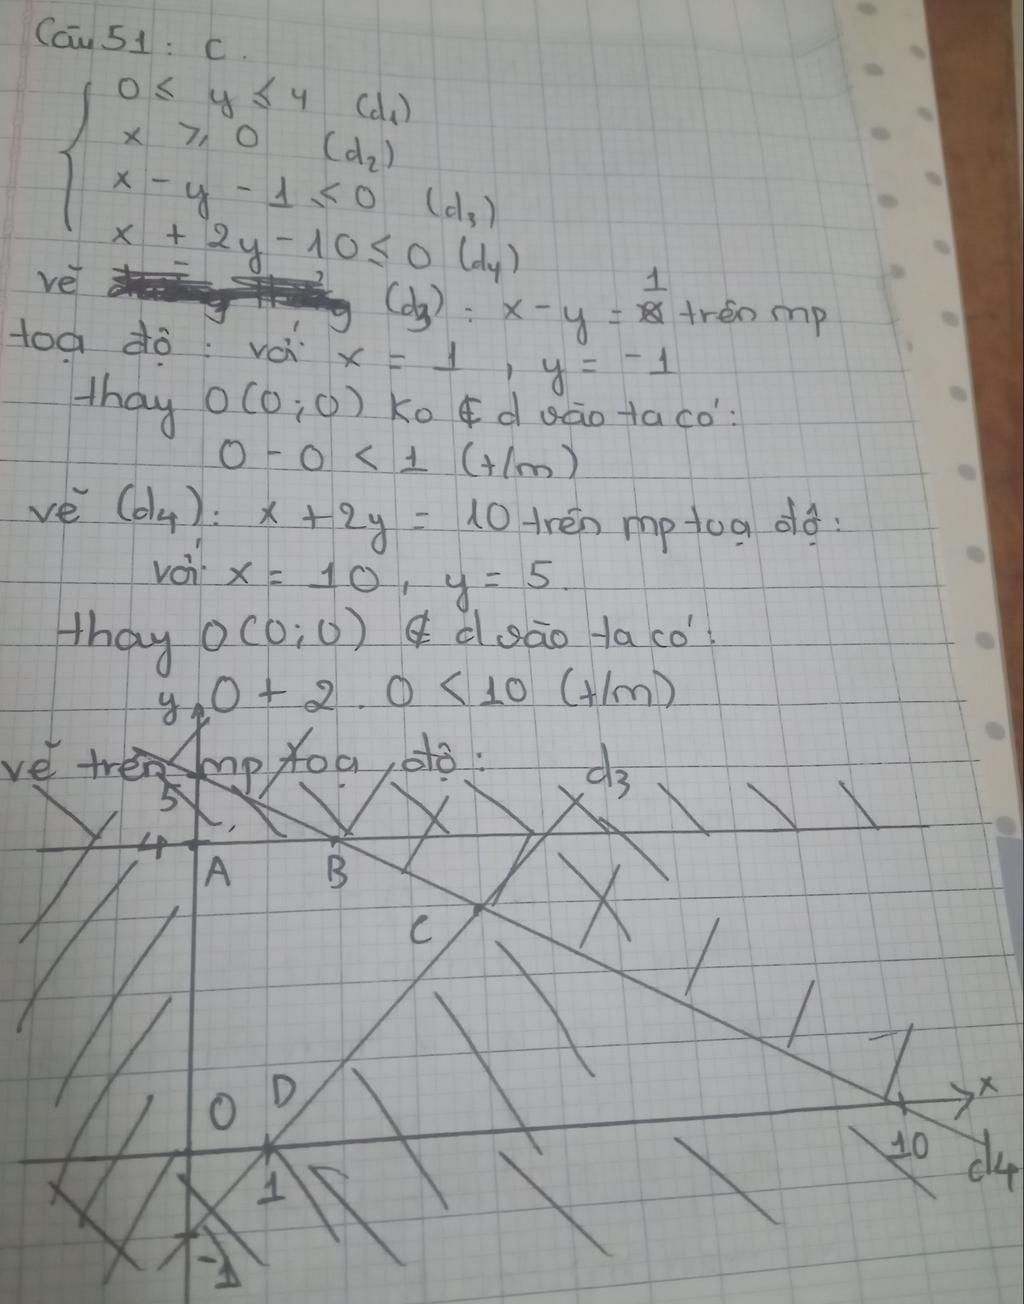 Câu 51: C.
0 ≤ y ≤ 4 (d1)
x ≥ 0 (d2)
x - y - 1 ≤ 0 (d3)
x + 2y - 10 ≤ 0 (d4)
vẽ (d3): x - y = 1 trên mp
toạ độ: với x = 1, y = -1
thay O(0;0) ko ∉ d vào ta có:
0 - 0 < 1 (t/m)
vẽ (d4): x + 2y = 10 trên mp toạ độ:
với x = 10, y = 5.
thay O(0;0) ∉ d vào ta có:
0 + 2.0 < 10 (t/m)
y
vẽ trên mp toạ độ:
5
d3
4
A
B
C
O
D
x
1
10
d4
-1